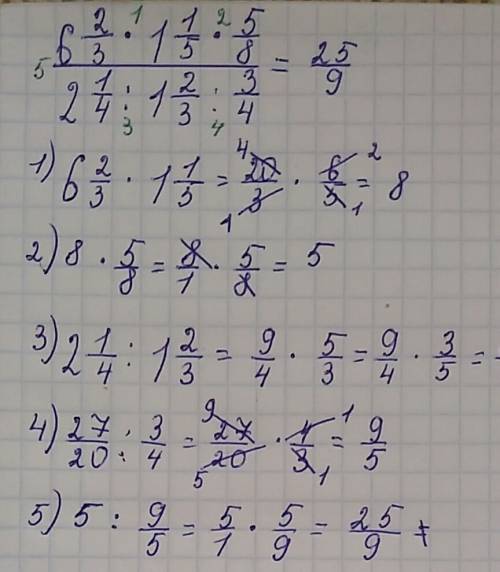 6 2/3 · 1 1/5 · 5/8
1 2
5 ———————— = 25/9
2 1/4 : 1 2/3 : 3/4
3 4
1) 6 2/3 · 1 1/5 = 20/3 · 6/5 = 8
4 2
1 1
2) 8 · 5/8 = 8/1 · 5/8 = 5
3) 2 1/4 : 1 2/3 = 9/4 · 5/3 = 9/4 · 3/5 =
4) 27/20 : 3/4 = 27/20 · 4/3 = 9/5
9 1
5 1
5) 5 : 9/5 = 5/1 · 5/9 = 25/9